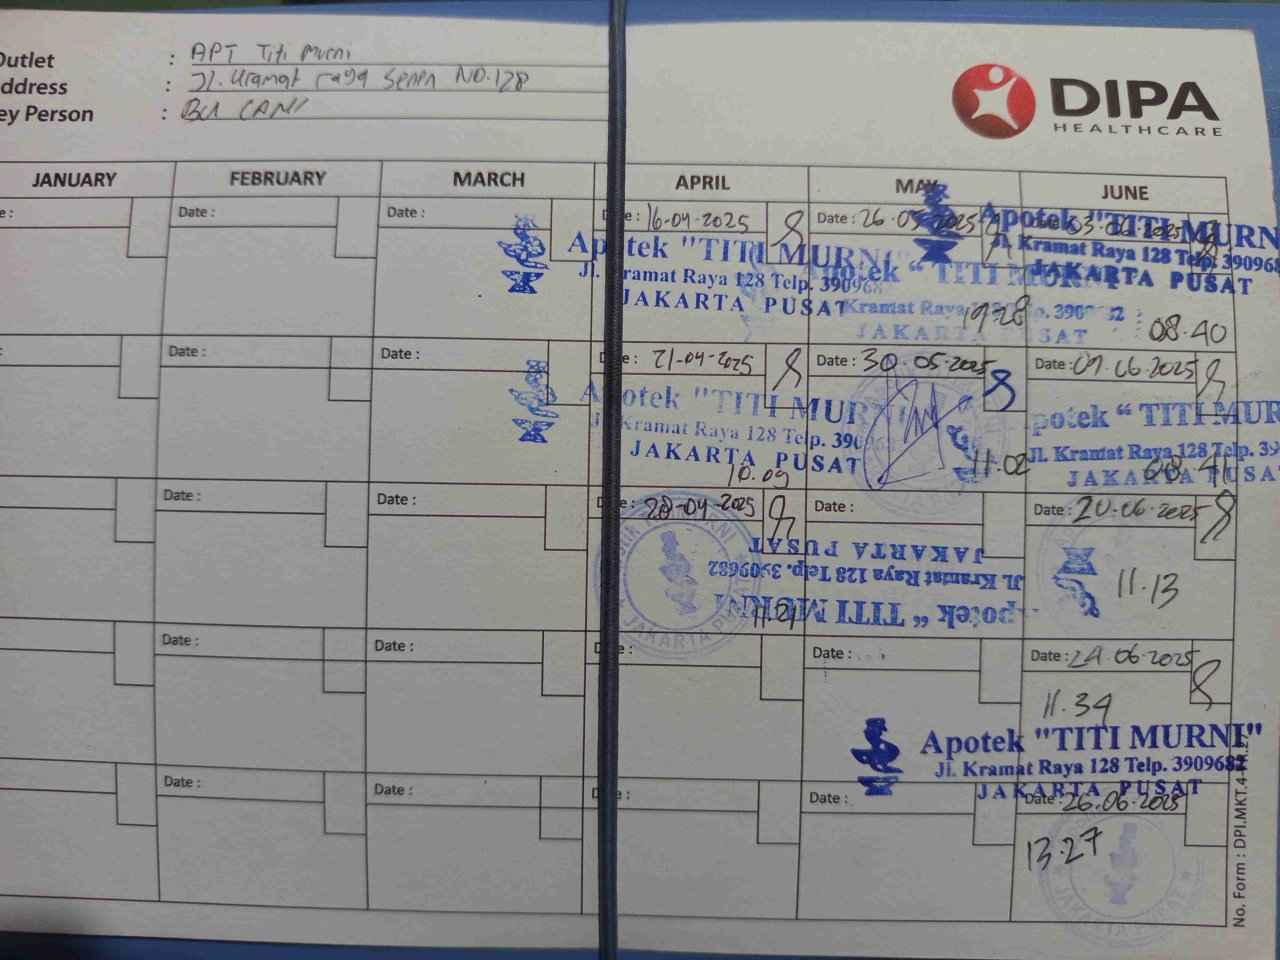 Outlet : APT Titi Murni
Address : Jl. Kramat raya Senen NO.128
Key Person : BU CANI
DIPA
HEALTHCARE
JANUARY FEBRUARY MARCH APRIL MAY JUNE
Date : Date : Date : 16-04-2025 Date : 26.05.2025 03.06.2025
Apotek "TITI MURNI"
Jl. Kramat Raya 128 Telp. 390968
JAKARTA PUSAT
Apotek "TITI MURNI"
Kramat Raya
JAKARTA PUSAT
19.28
Apotek "TITI MURN
Jl. Kramat Raya 128 Telp. 390968
JAKARTA PUSAT
08.40
Date : Date : 21-04-2025 Date : 30.05.2025 Date : 09.06.2025
Apotek "TITI MURNI"
Jl. Kramat Raya 128 Telp. 390968
JAKARTA PUSAT
10.09
11.02
Apotek "TITI MUR
Jl. Kramat Raya 128 Telp. 39
JAKARTA PUSA
08.41
Date : Date : 28-04-2025 Date : Date : 20.06.2025
JAKARTA PUSAT
Apotek "TITI MURNI"
Jl. Kramat Raya 128 Telp. 3909682
JAKARTA PUSAT
11.21
11.13
Date : Date : Date : Date : 24.06.2025
11.34
Apotek "TITI MURNI"
Jl. Kramat Raya 128 Telp. 3909682
JAKARTA PUSAT
Date : Date : Date : Date : Date : 26.06.2025
13.27
JAKARTA PUSAT
No. Form : DPI.MKT.4-